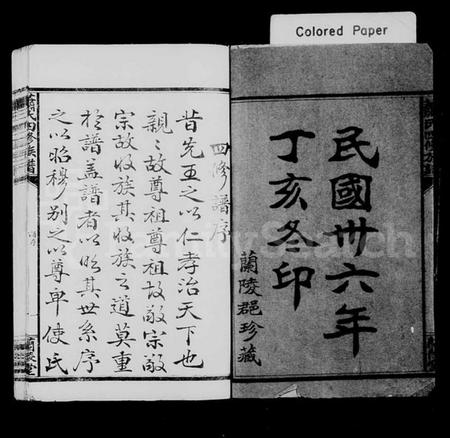 Colored Paper
民國卅六年
丁亥冬印
蘭陵郡珍藏
四修譜序
昔先王之以仁孝治天下也
親〻故尊祖尊祖故敬宗敬
宗故收族其收族之道莫重
於譜蓋譜者以明其世系序
之以昭穆別之以尊卑使民
蕭氏四修族譜
FamilySearch